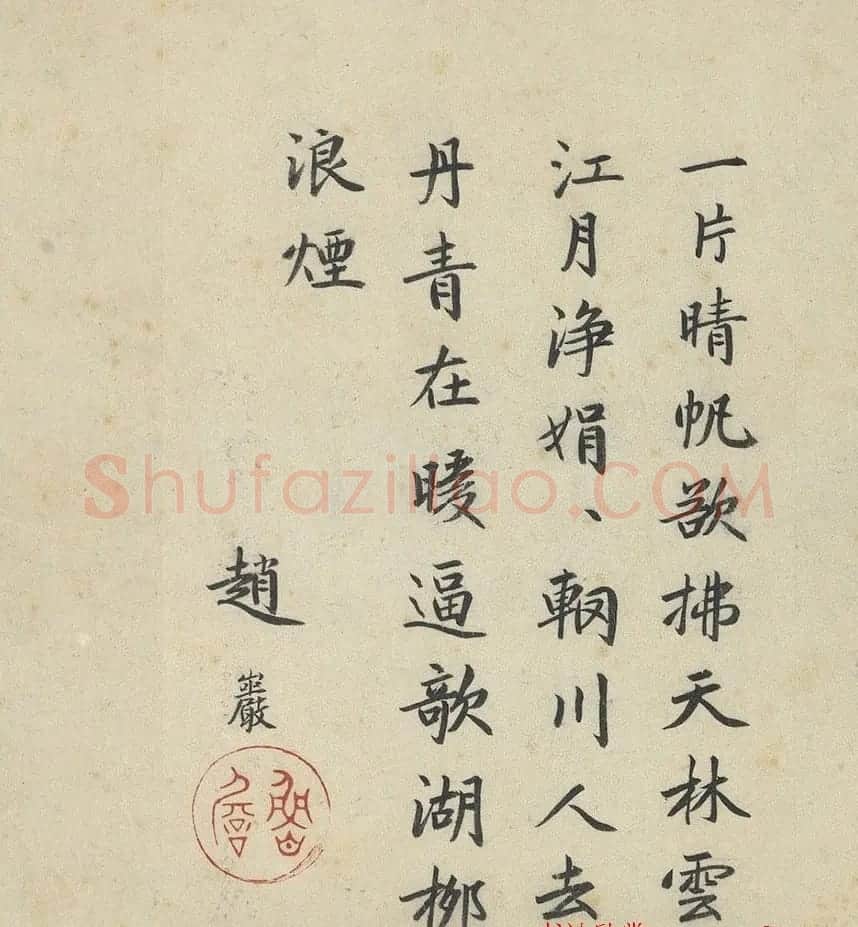 一片晴帆欲拂天林雲
江月浄娟、輞川人去
丹青在暖逼欹湖柳
浪煙
趙巖
Shufaziliao.COM